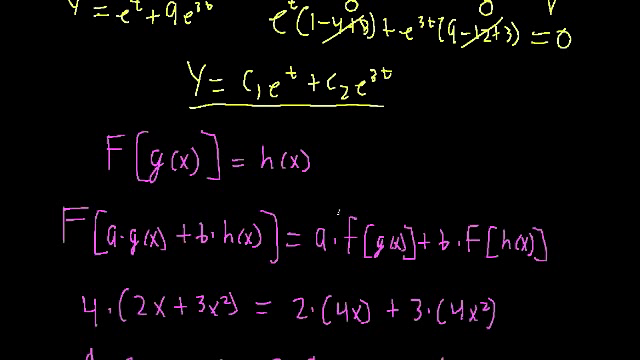 Y = e^t + 9e^{3t} e^t(1-4+3) + e^{3t}(9-12+3) = 0
0 0
Y = C₁e^t + C₂e^{3t}
F[g(x)] = h(x)
F[a·g(x) + b·h(x)] = a·f[g(x)] + b·F[h(x)]
4·(2x + 3x²) = 2·(4x) + 3·(4x²)